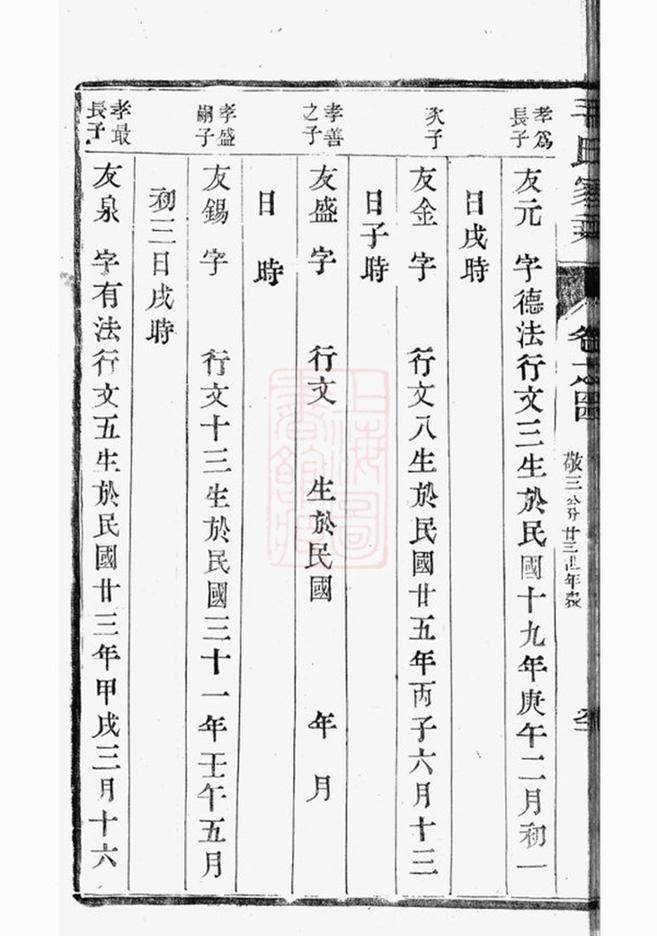 氏家乘
卷之四
敬三公分廿三世年表
孝為長子
友元 字德法行文三生於民國十九年庚午二月初一
日戌時
次子
友金 字 行文八生於民國廿五年丙子六月十三
日子時
孝善之子
友盛 字 行文 生於民國 年 月
日 時
孝盛嗣子
友錫 字 行文十三生於民國三十一年壬午五月
初三日戌時
孝最長子
友泉 字有法行文五生於民國廿三年甲戌三月十六
上海圖書館藏